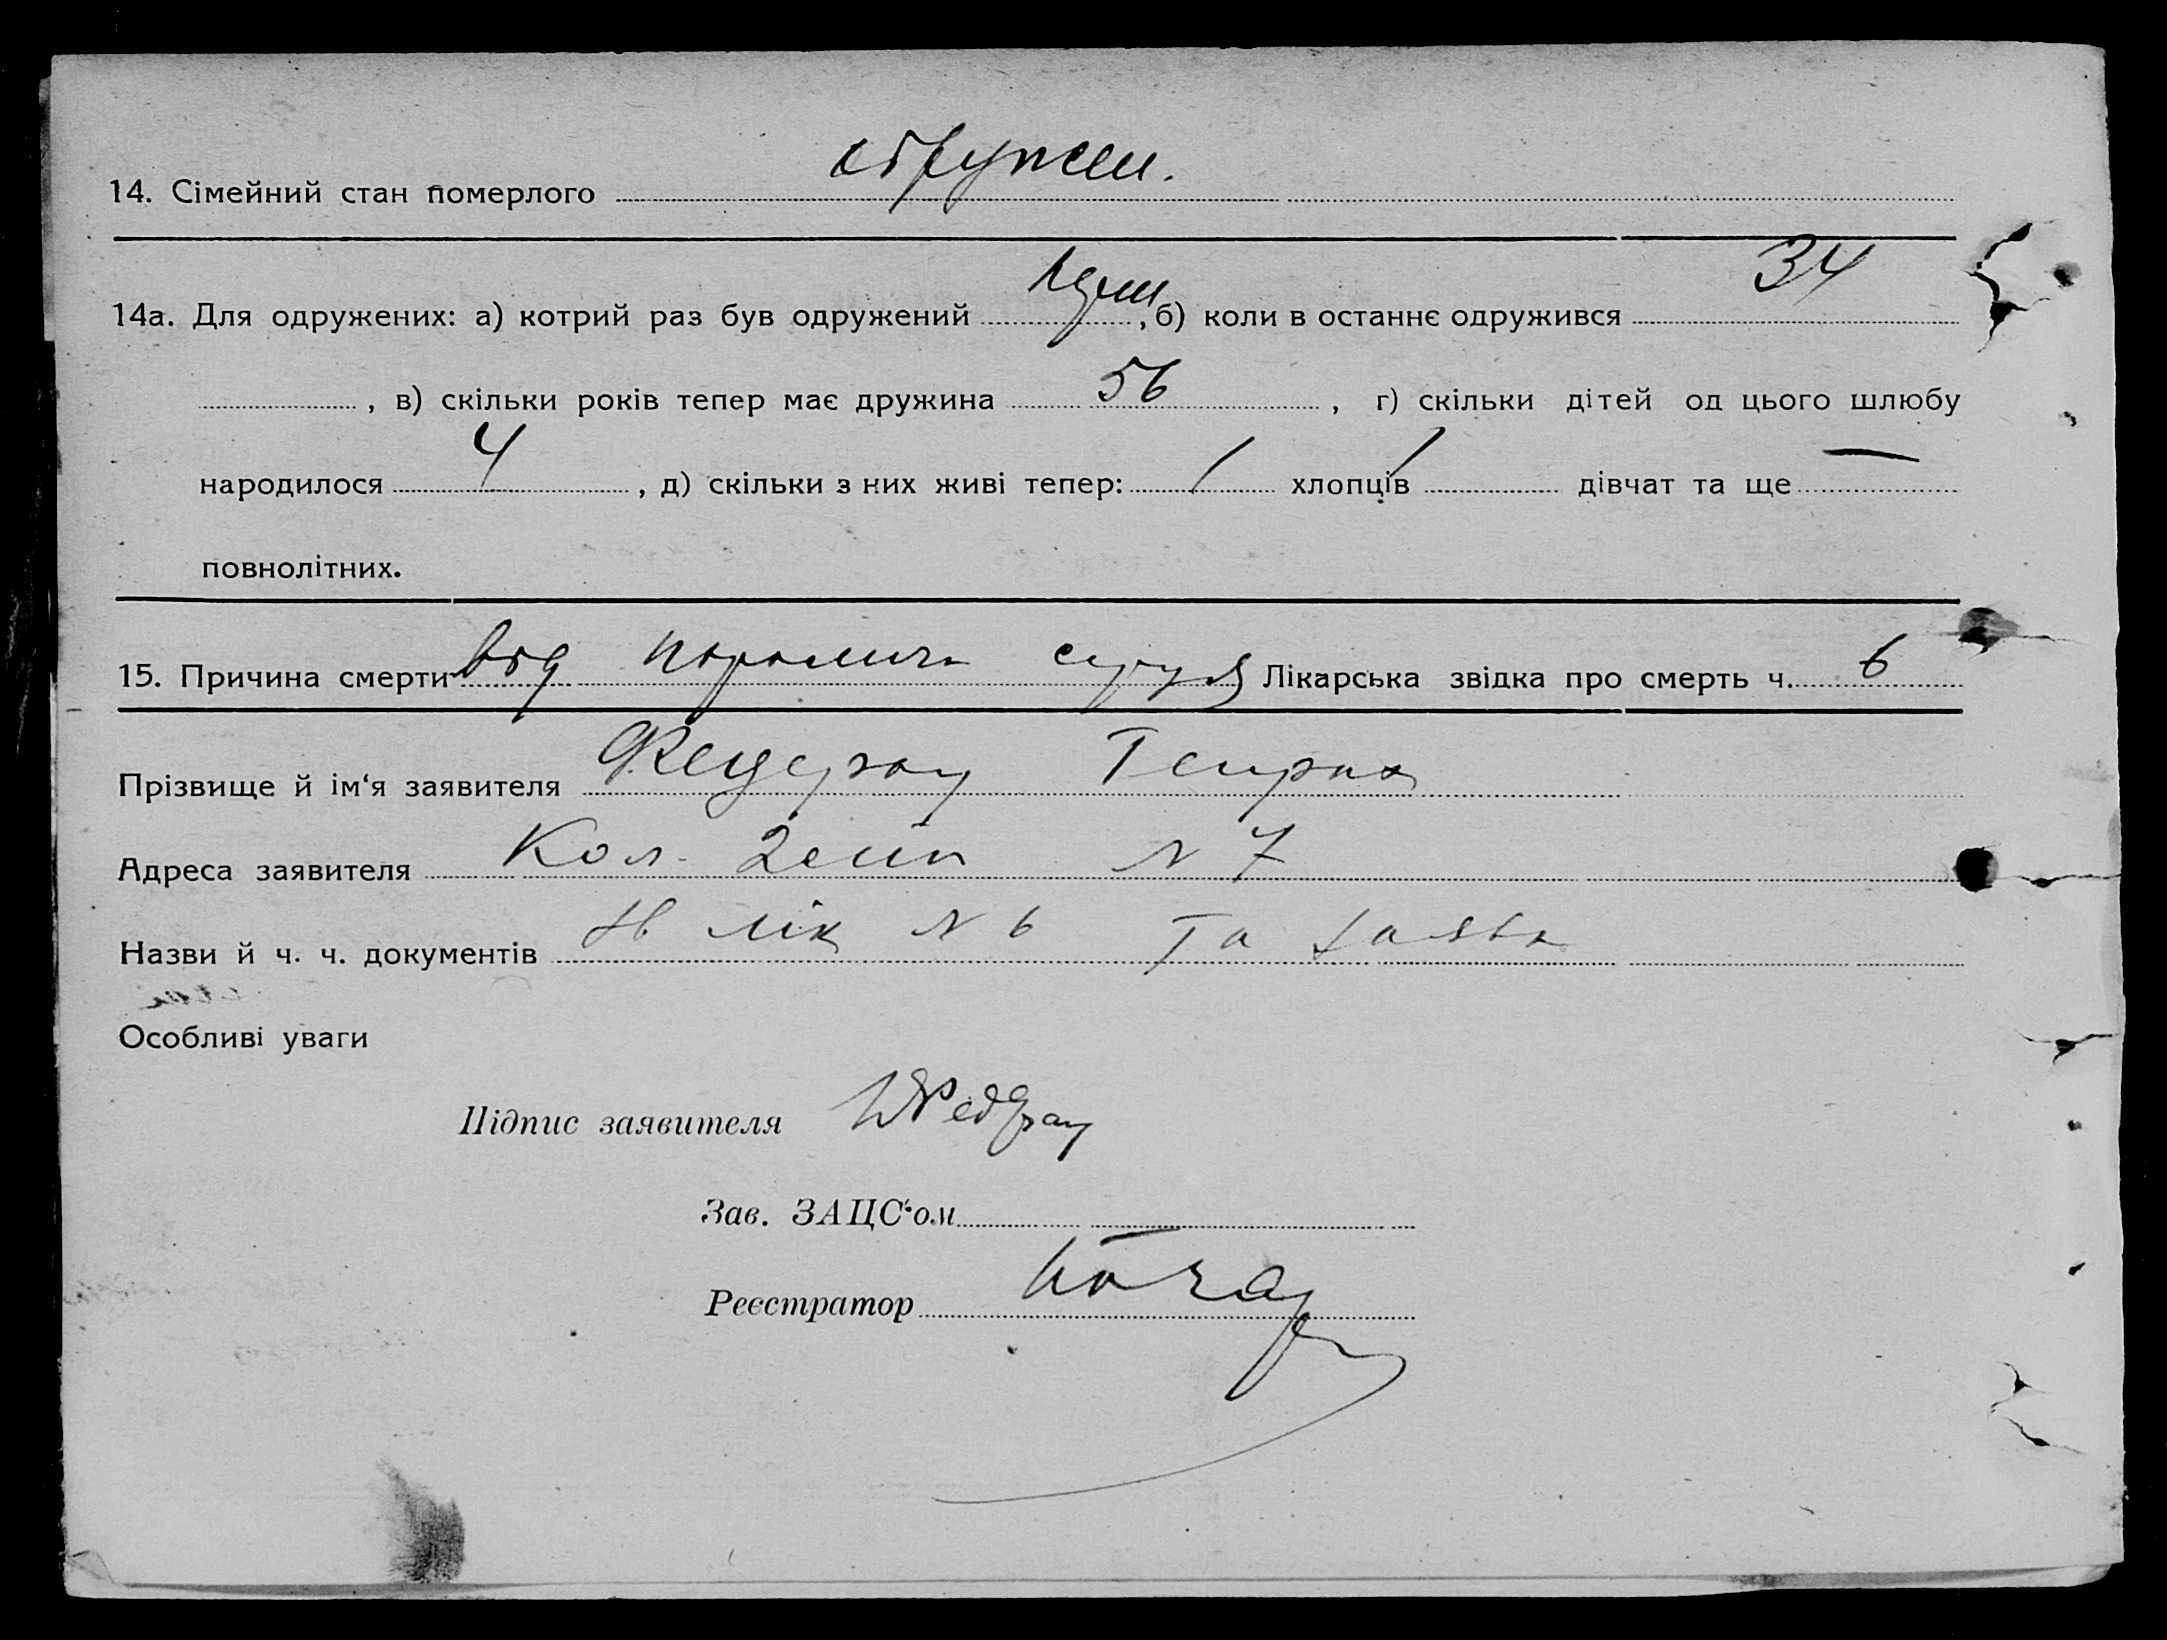 14. Сімейний стан померлого одружен.
14а. Для одружених: а) котрий раз був одружений , б) коли в останнє одружився 34
, в) скільки років тепер має дружина 56 , г) скільки дітей од цього шлюбу
народилося 4 , д) скільки з них живі тепер: 1 хлопців 1 дівчат та ще —
повнолітних.
15. Причина смерти від Лікарська звідка про смерть ч. 6
Прізвище й ім‘я заявителя Федерау Генрих
Адреса заявителя Кол. N 7
Назви й ч. ч. документів лік N 6 та заява
Особливі уваги
Підпис заявителя
Зав. ЗАЦС‘ом
Реєстратор